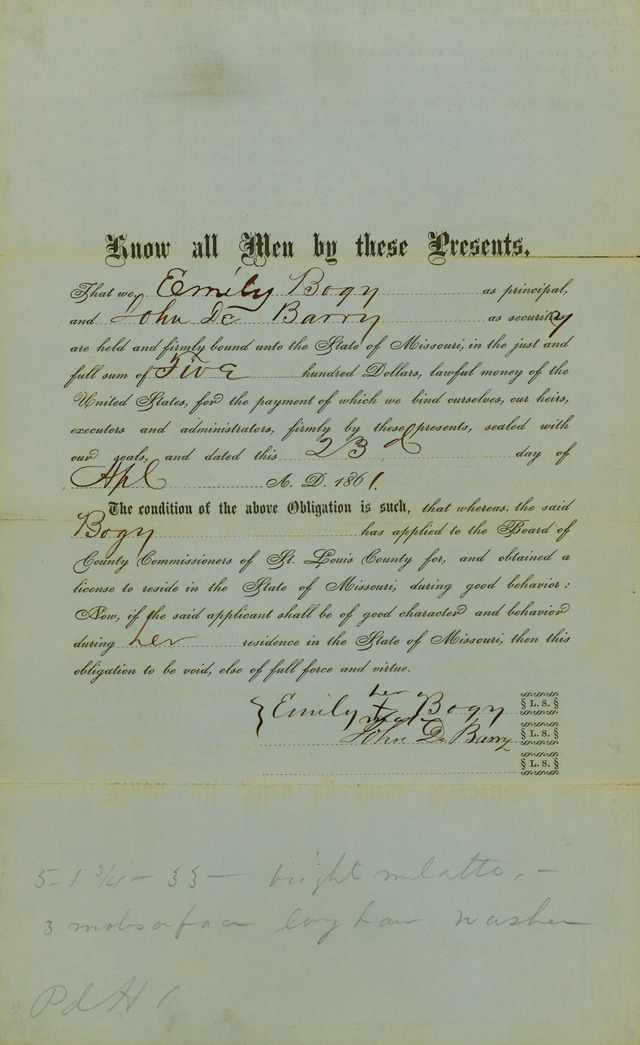 Know all Men by these Presents,
That we, Emily Bogy as principal,
and John De Barry as security
are held and firmly bound unto the State of Missouri, in the just and
full sum of Five hundred Dollars, lawful money of the
United States, for the payment of which we bind ourselves, our heirs,
executors and administrators, firmly by these presents, sealed with
our seals, and dated this 23d day of
Apl A. D. 1861.
The condition of the above Obligation is such, that whereas the said
Bogy has applied to the Board of
County Commissioners of St. Louis County for, and obtained a
license to reside in the State of Missouri, during good behavior:
Now, if the said applicant shall be of good character and behavior
during her residence in the State of Missouri, then this
obligation to be void, else of full force and virtue.
her
Emily X Bogy L. S.
mark
John De Barry L. S.
L. S.
5-1 3/4 - 33 - bright mulatto, -
3 mols on face long hair washer
Pd $1